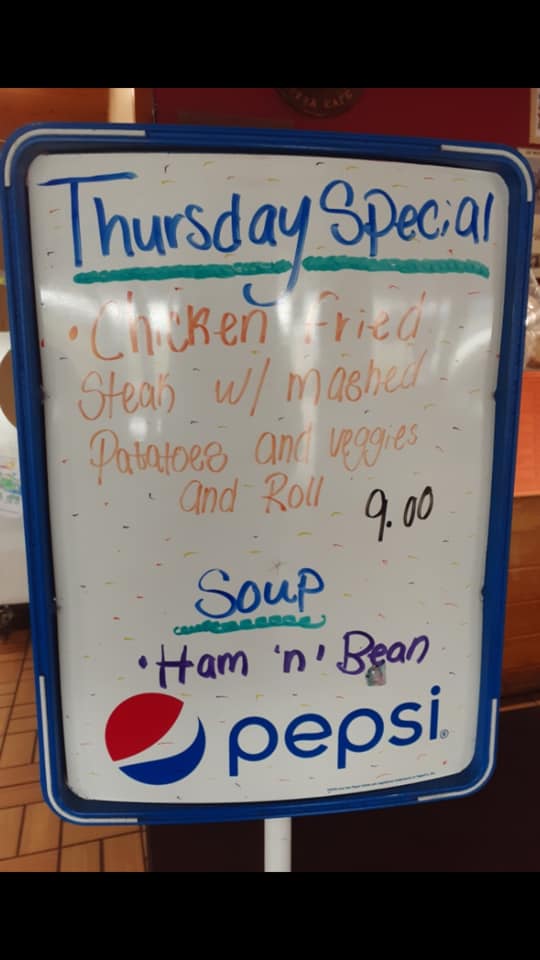 Thursday Special
• Chicken Fried
Steak w/ mashed
Patatoes and veggies
and Roll
9.00
Soup
• Ham 'n' Bean
pepsi®